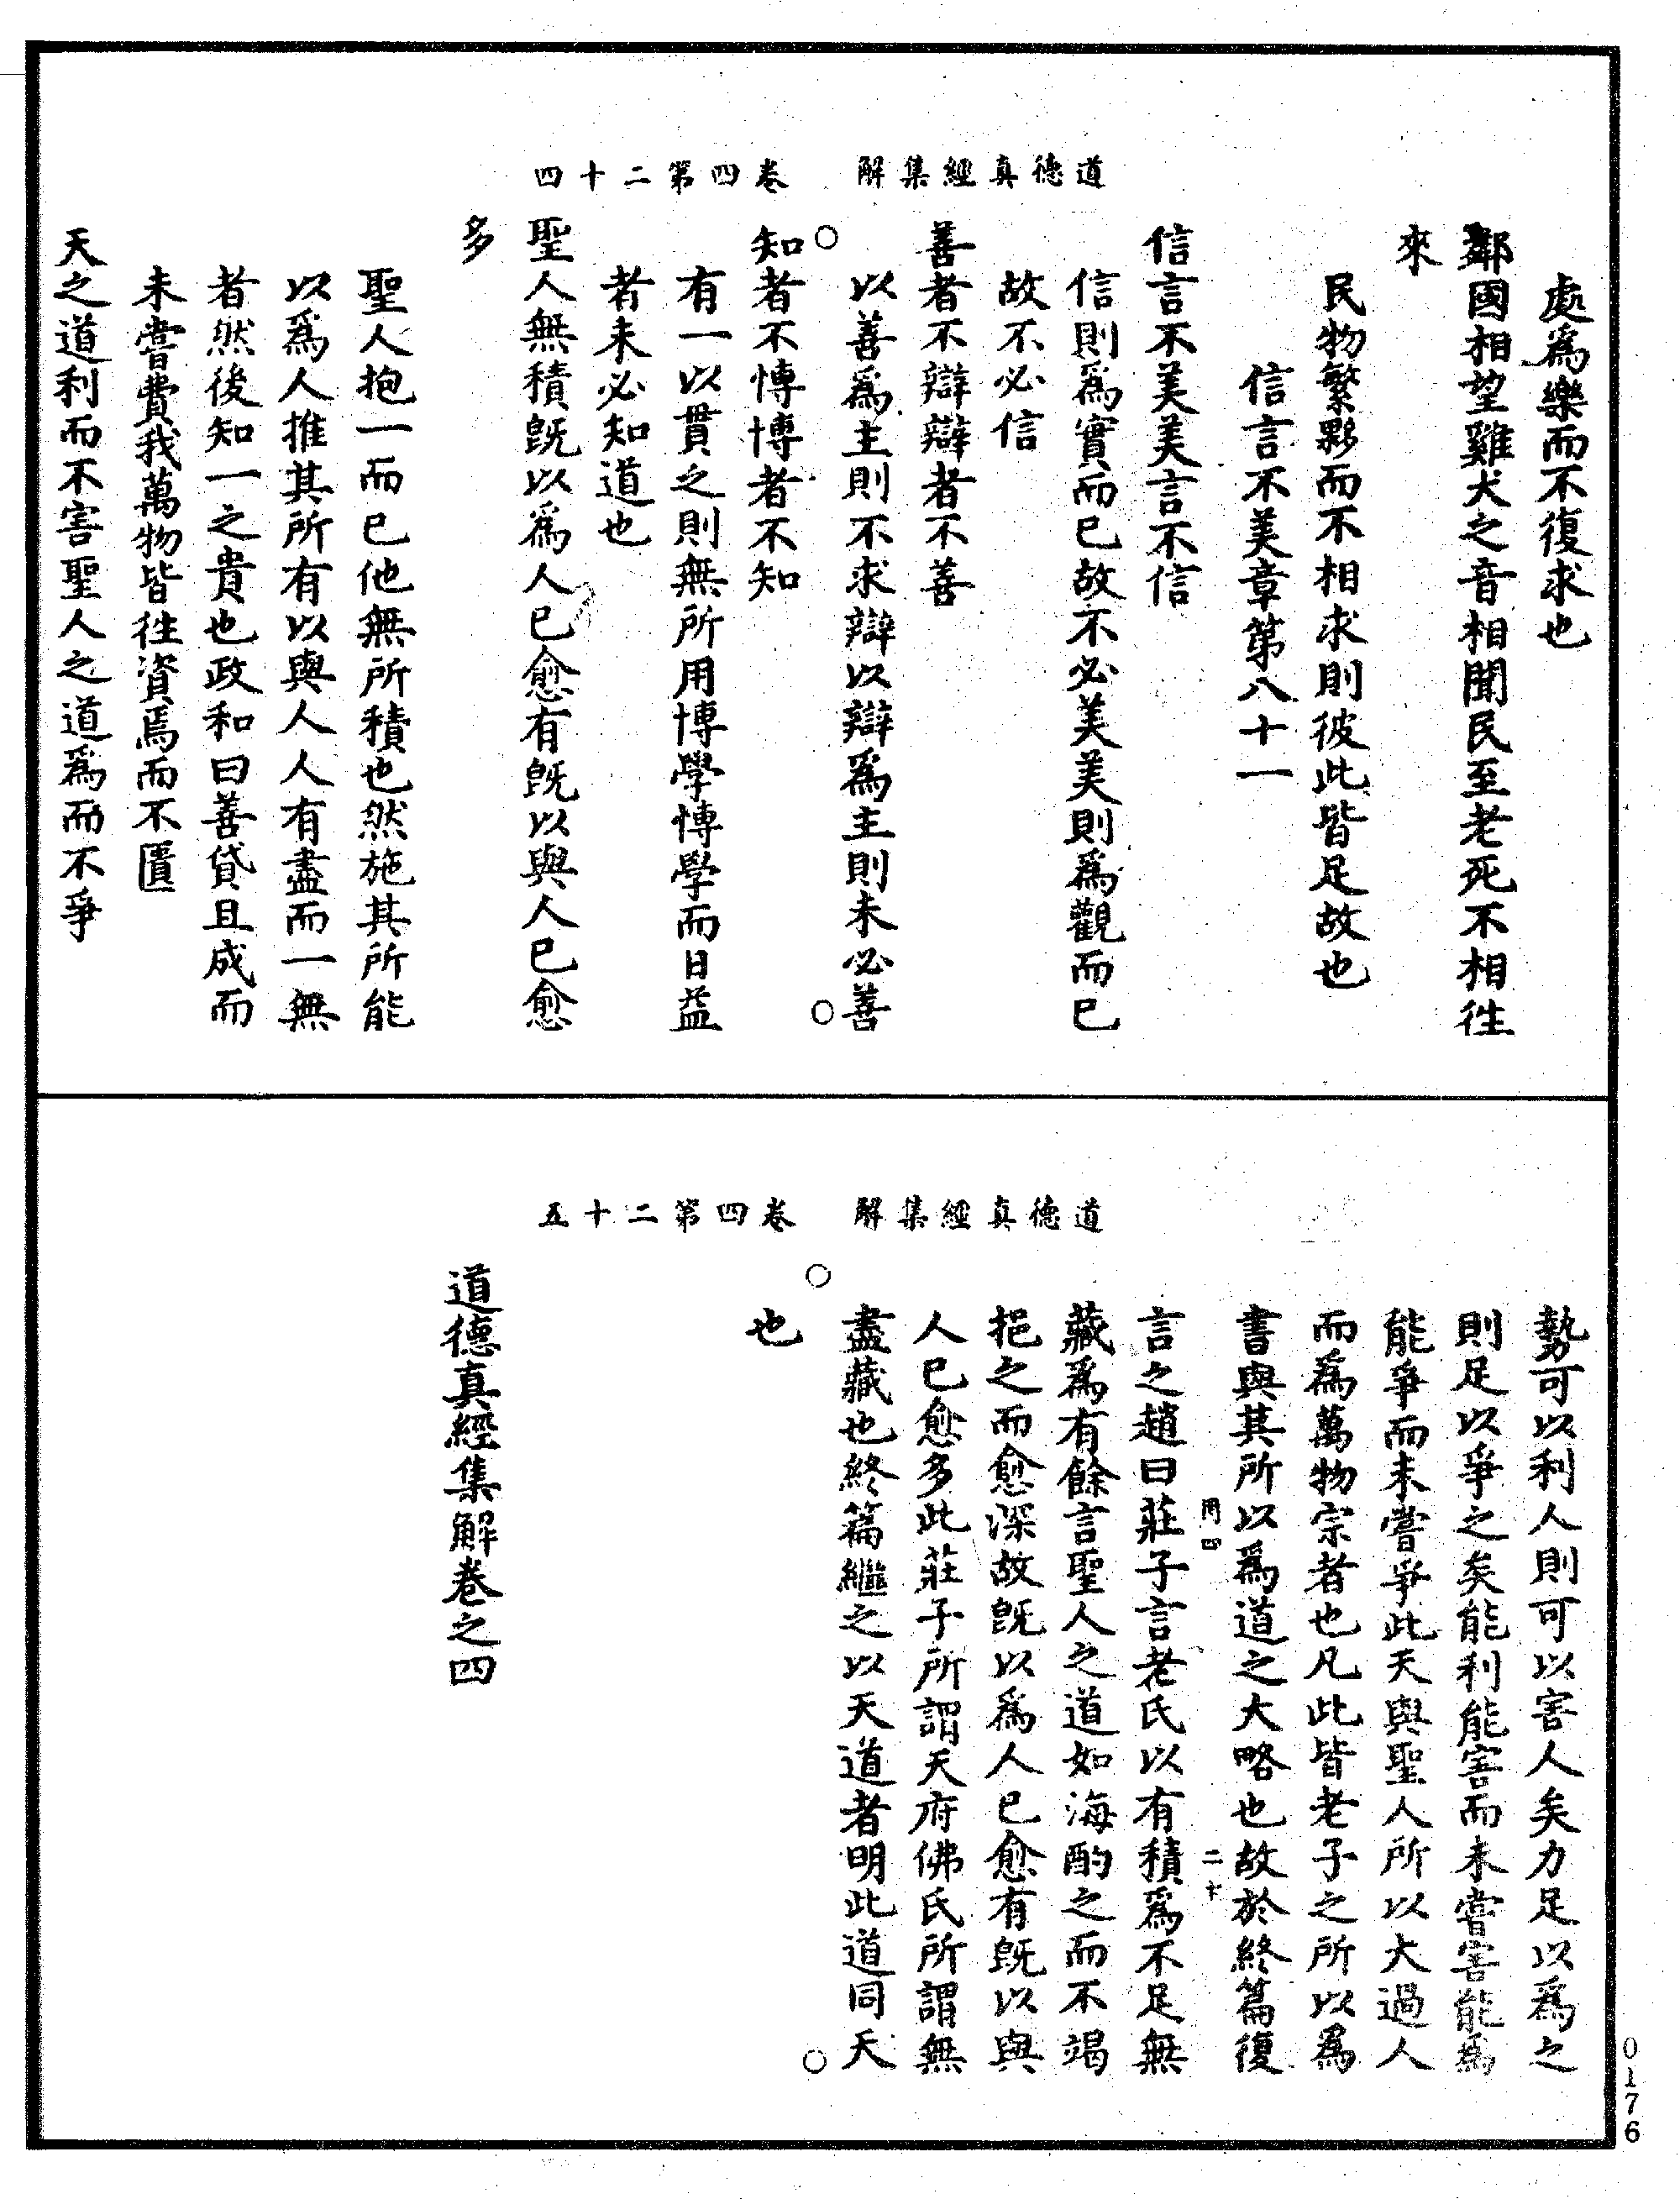 道德真經集解　卷四第二十四
處爲樂而不復求也
鄰國相望雞犬之音相聞民至老死不相徃
來
民物繁夥而不相求則彼此皆足故也
信言不美章第八十一
信言不美美言不信
信則爲實而已故不必美美則爲觀而已
故不必信
善者不辯辯者不善
以善爲主則不求辯以辯爲主則未必善
知者不博博者不知
有一以貫之則無所用博學博學而日益
者未必知道也
聖人無積旣以爲人已愈有旣以與人已愈
多
聖人抱一而已他無所積也然施其所能
以爲人推其所有以與人人有盡而一無
者然後知一之貴也政和曰善貸且成而
未嘗費我萬物皆徃資焉而不匱
天之道利而不害聖人之道爲而不爭
道德真經集解　卷四第二十五
勢可以利人則可以害人矣力足以爲之
則足以爭之矣能利能害而未嘗害能爲
能爭而未嘗爭此天與聖人所以大過人
而爲萬物宗者也凡此皆老子之所以爲
書與其所以爲道之大略也故於終篇復
言之趙曰莊子言老氏以有積爲不足無
藏爲有餘言聖人之道如海酌之而不竭
挹之而愈深故旣以爲人已愈有旣以與
人已愈多此莊子所謂天府佛氏所謂無
盡藏也終篇繼之以天道者明此道同天
也
道德真經集解卷之四
0176